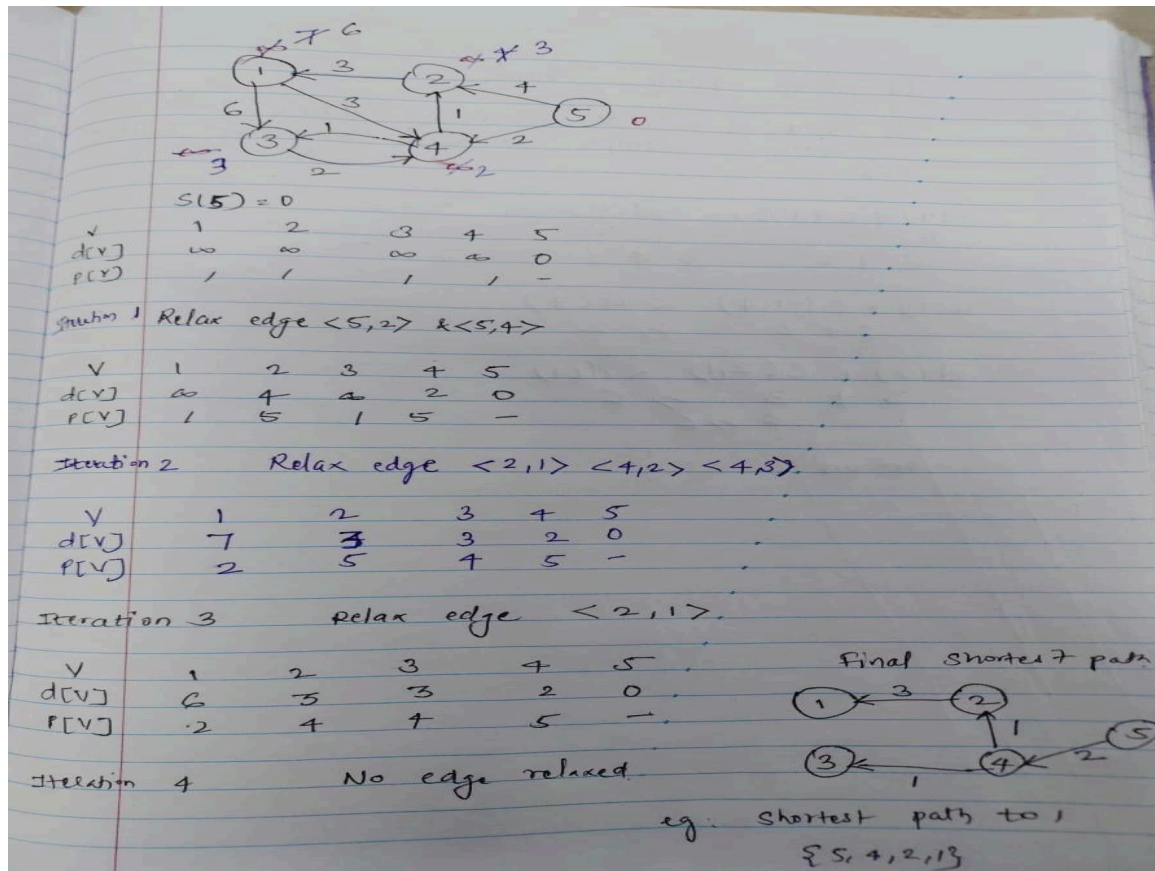 ∞ 7 6
∞ 4 3
1 3 2 4
6 3 1 5 0
3 1 4 2
∞ 3 2 ∞ 2
S(5) = 0
V 1 2 3 4 5
d[V] ∞ ∞ ∞ ∞ 0
P[V] / / / / -
Iteration 1 Relax edge <5,2> &<5,4>
V 1 2 3 4 5
d[V] ∞ 4 ∞ 2 0
P[V] / 5 / 5 -
Iteration 2 Relax edge <2,1> <4,2> <4,3>.
V 1 2 3 4 5
d[V] 7 3 3 2 0
P[V] 2 5 4 5 -
Iteration 3 Relax edge <2,1>.
V 1 2 3 4 5
d[V] 6 3 3 2 0
P[V] 2 4 4 5 -
Iteration 4 No edge relaxed
Final shortest path
1 3 2
1 5
3 4 2
1
eg. Shortest path to 1
{5,4,2,1}